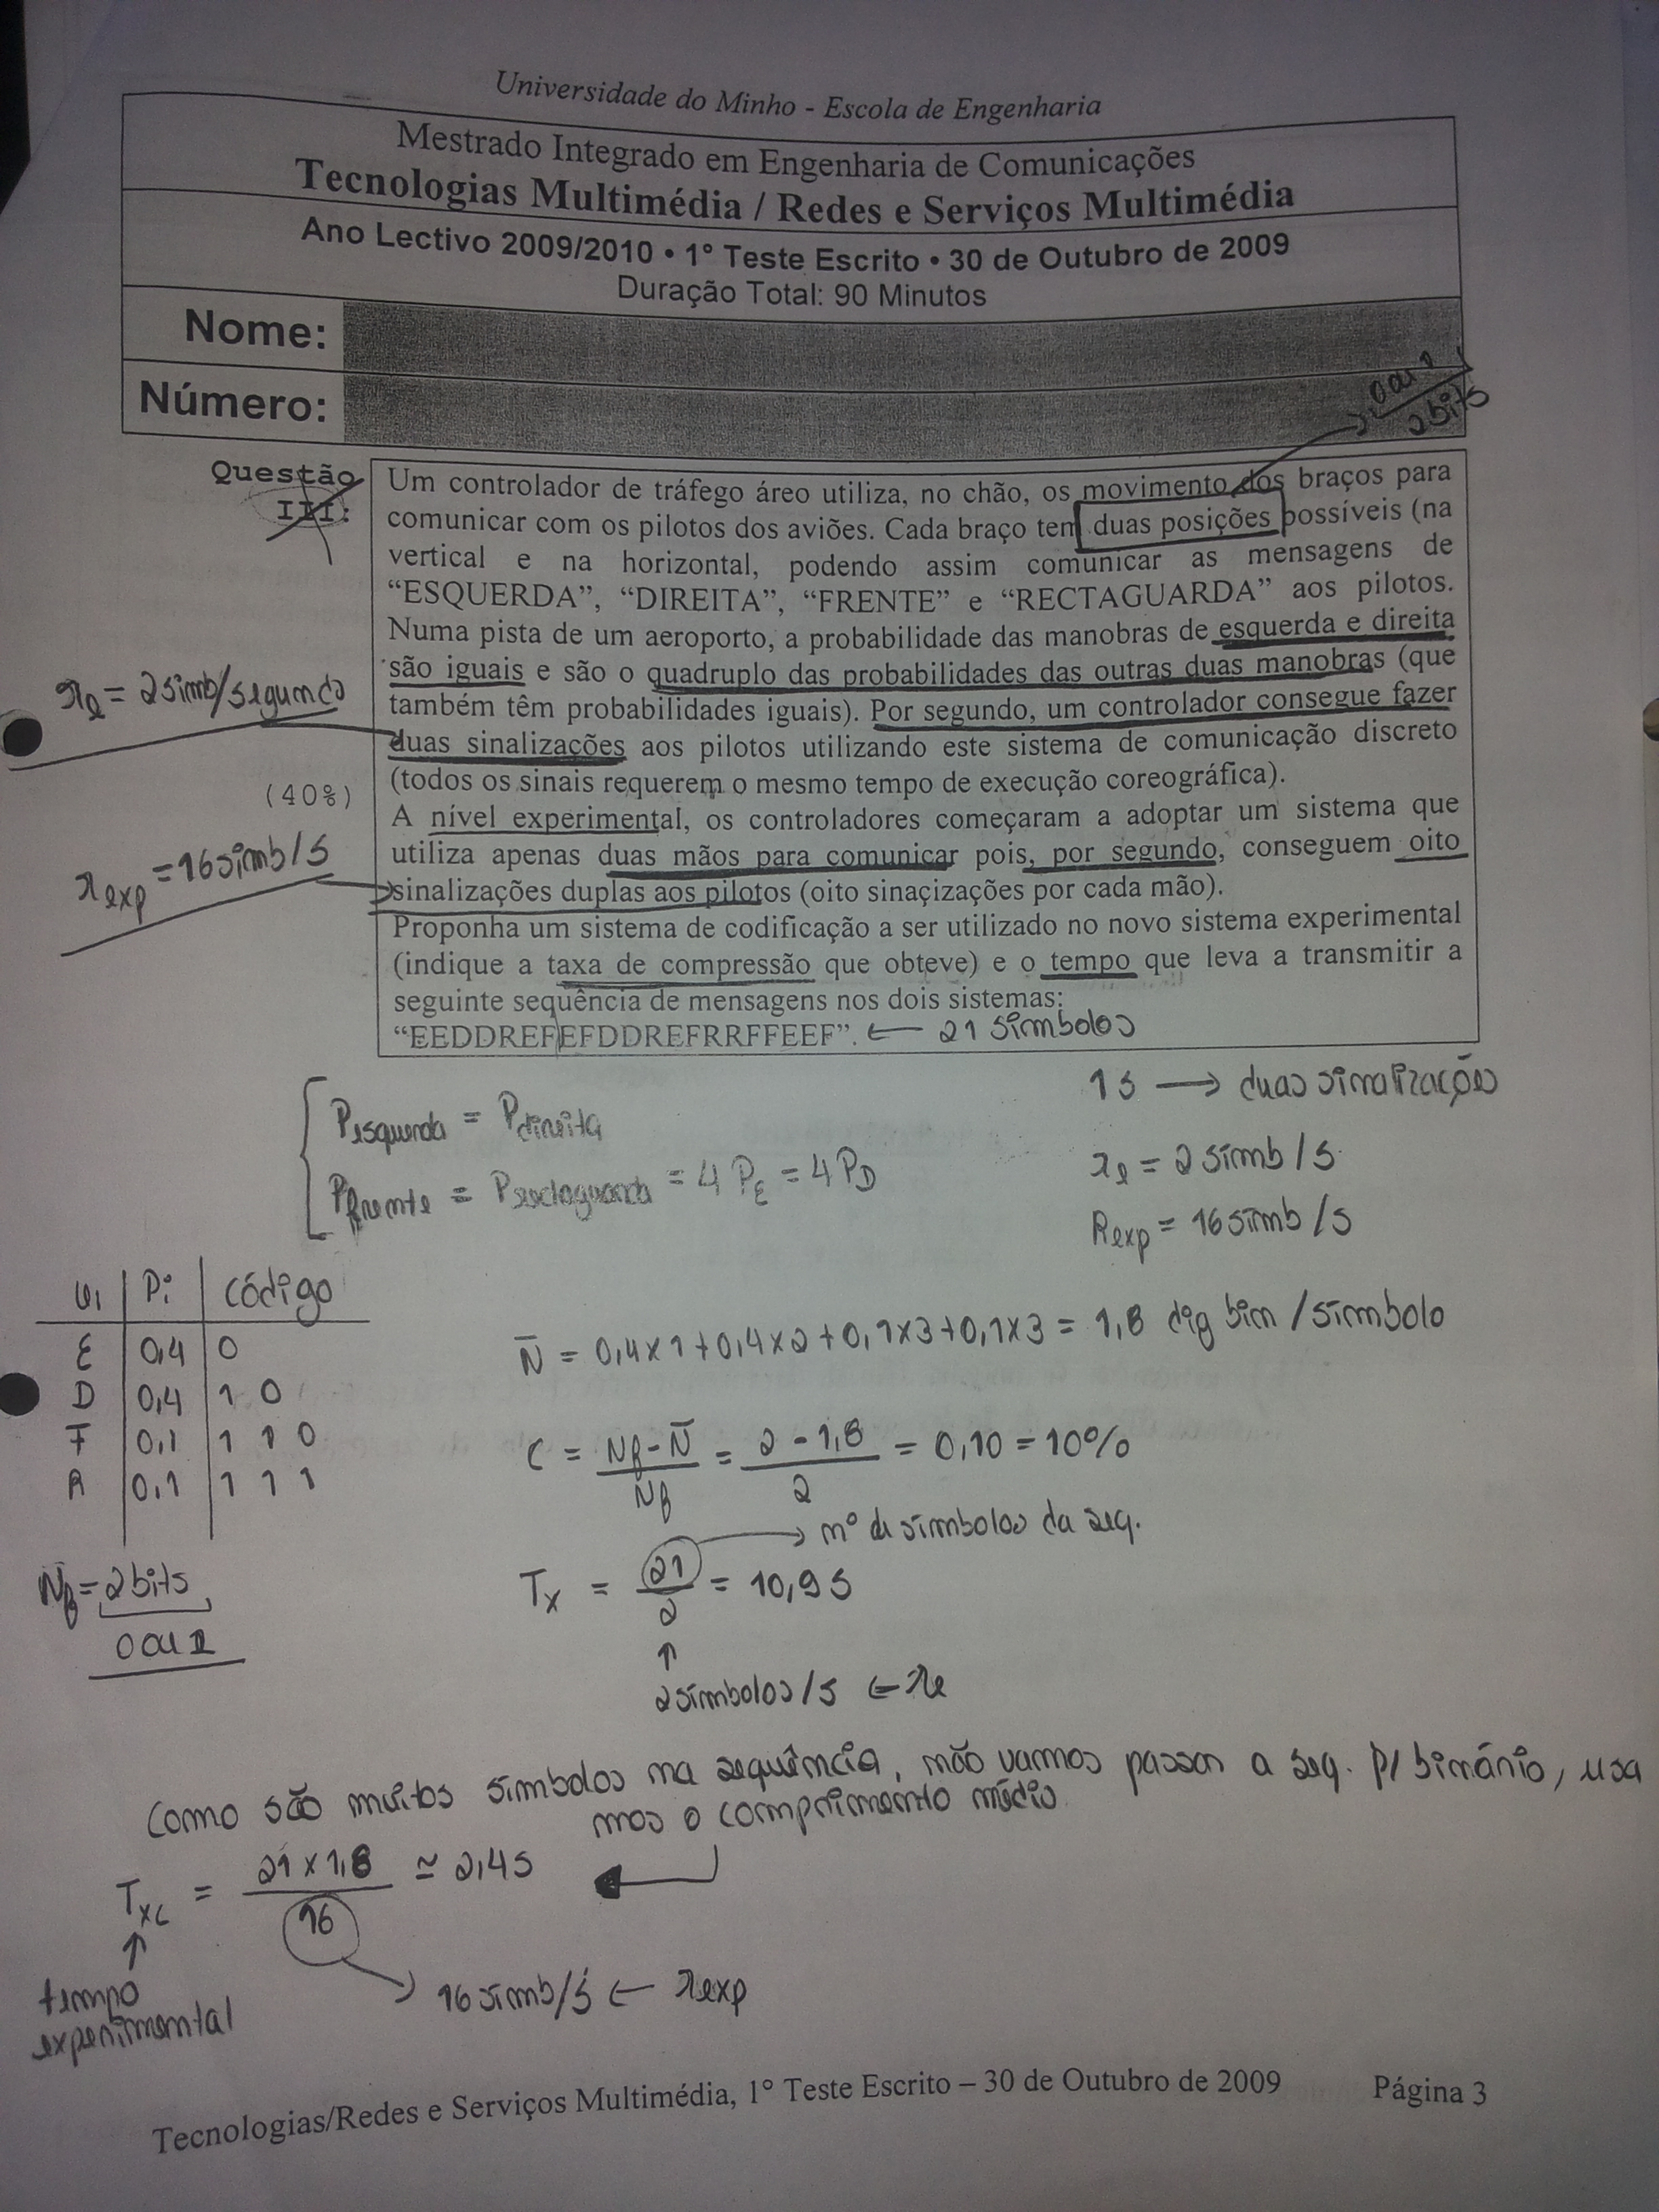 Universidade do Minho - Escola de Engenharia
Mestrado Integrado em Engenharia de Comunicações
Tecnologias Multimédia / Redes e Serviços Multimédia
Ano Lectivo 2009/2010 • 1º Teste Escrito • 30 de Outubro de 2009
Duração Total: 90 Minutos
Nome:
Número:
0 ou 1
2 bits
Questão
III:
Um controlador de tráfego áreo utiliza, no chão, os movimento dos braços para
comunicar com os pilotos dos aviões. Cada braço tem duas posições possíveis (na
vertical e na horizontal, podendo assim comunicar as mensagens de
“ESQUERDA”, “DIREITA”, “FRENTE” e “RECTAGUARDA” aos pilotos.
Numa pista de um aeroporto, a probabilidade das manobras de esquerda e direita
são iguais e são o quadruplo das probabilidades das outras duas manobras (que
também têm probabilidades iguais). Por segundo, um controlador consegue fazer
duas sinalizações aos pilotos utilizando este sistema de comunicação discreto
(todos os sinais requerem o mesmo tempo de execução coreográfica).
A nível experimental, os controladores começaram a adoptar um sistema que
utiliza apenas duas mãos para comunicar pois, por segundo, conseguem oito
sinalizações duplas aos pilotos (oito sinaçizações por cada mão).
Proponha um sistema de codificação a ser utilizado no novo sistema experimental
(indique a taxa de compressão que obteve) e o tempo que leva a transmitir a
seguinte sequência de mensagens nos dois sistemas:
“EEDDREFEFDDREFRRFFEEF”. ← 21 simbolos
re = 2 simb/segundo
(40%)
rexp = 16 simb/s
Pesquerda = Pdireita
Pfrente = Prectaguarda = 4 PE = 4 PD
1s → duas sinalizações
re = 2 simb/s
Rexp = 16 simb/s
Pi código
E 0,4 0
D 0,4 1 0
F 0,1 1 1 0
R 0,1 1 1 1
Nf = 2 bits
0 ou 1
N̄ = 0,4x1+0,4x2+0,1x3+0,1x3 = 1,8 dig bin /simbolo
C = Nf - N̄ / Nf = 2 - 1,8 / 2 = 0,10 = 10%
Tx = 21 / 2 = 10,9 s
→ nº de simbolos da seq.
2 simbolos/s ← re
Como são muitos simbolos na sequência, não vamos passar a seq. p/ binário, usa
mos o comprimento médio
Txc = 21 x 1,8 / 16 ≃ 2,4 s
tempo
experimental
16 simb/s ← rexp
Tecnologias/Redes e Serviços Multimédia, 1º Teste Escrito – 30 de Outubro de 2009 Página 3